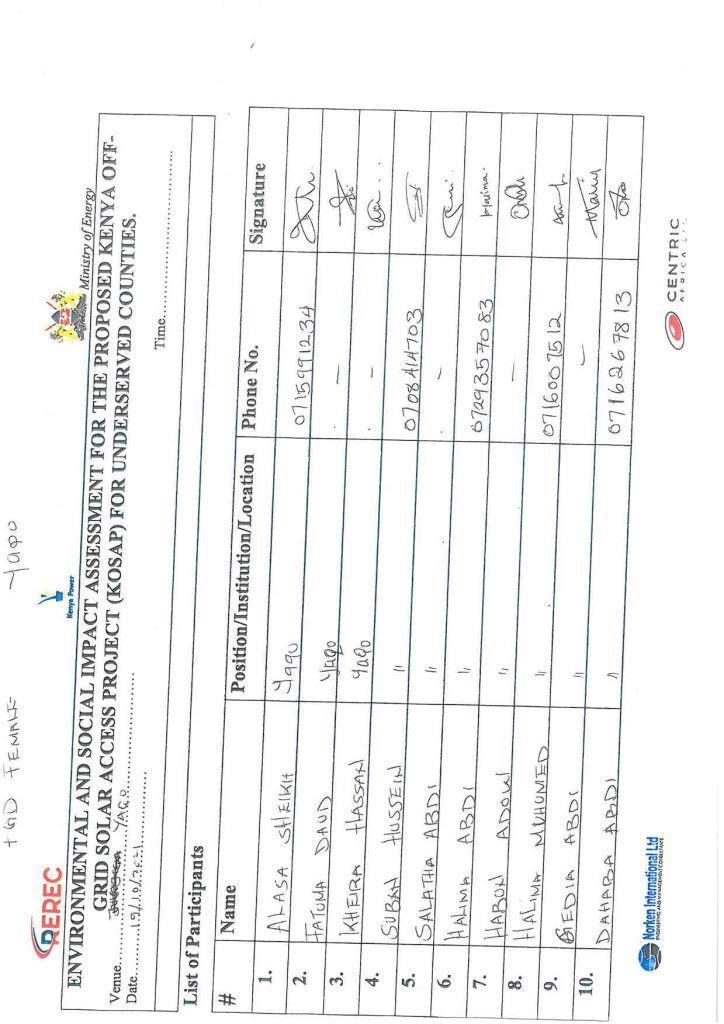 FGD FEMALE - Yaqo
REREC
Kenya Power
Ministry of Energy
ENVIRONMENTAL AND SOCIAL IMPACT ASSESSMENT FOR THE PROPOSED KENYA OFF-
GRID SOLAR ACCESS PROJECT (KOSAP) FOR UNDERSERVED COUNTIES.
Venue.......... YAQO..........
Date.....19/10/2021.......... Time..........
List of Participants
# Name Position/Institution/Location Phone No. Signature
1. ALASA SHEIKH Yaqo 0715991234
2. FATUMA DAUD Yaqo -
3. KHEIRA HASSAN Yaqo -
4. SUBAN HUSSEIN " 0708414703
5. SALATHA ABDI " -
6. HALIMA ABDI " 0729357083 Halima
7. HABON ADOW " -
8. HALIMA MUHUMED " 0716007512
9. GEDIA ABDI " -
10. DAHABA ABDI " 0716267813
Norken International Ltd
ENGINEERING AND MANAGEMENT CONSULTANTS
CENTRIC
AFRICA LTD